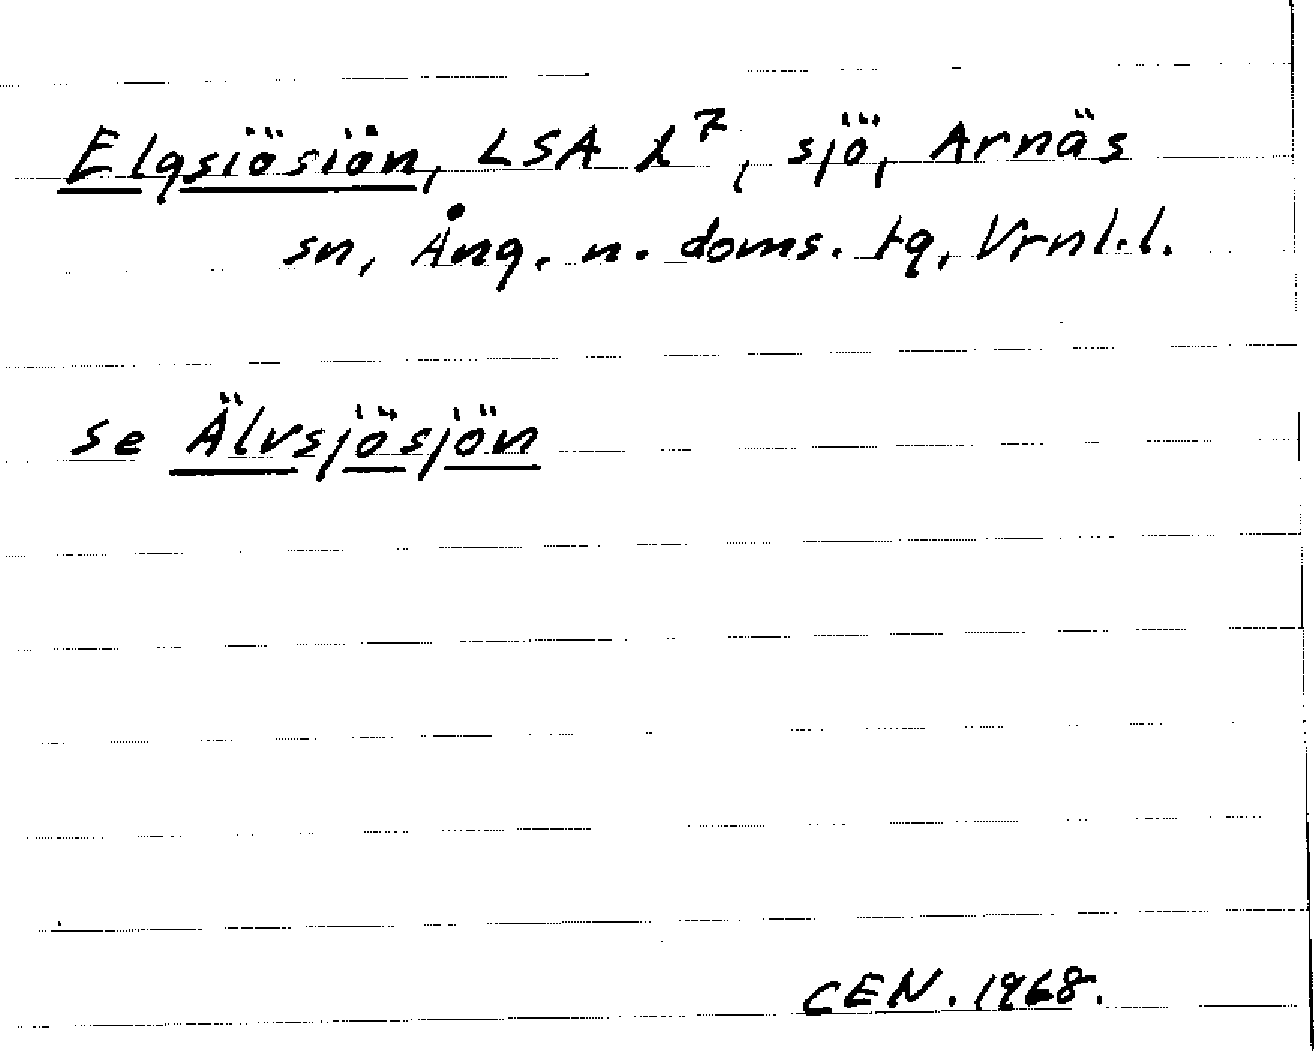 Elgsiösiön, LSA λ⁷, sjö, Arnäs
sn, Ång. n. doms. tg, Vrnl.l.
se Älvsjösjön
CEN. 1968.